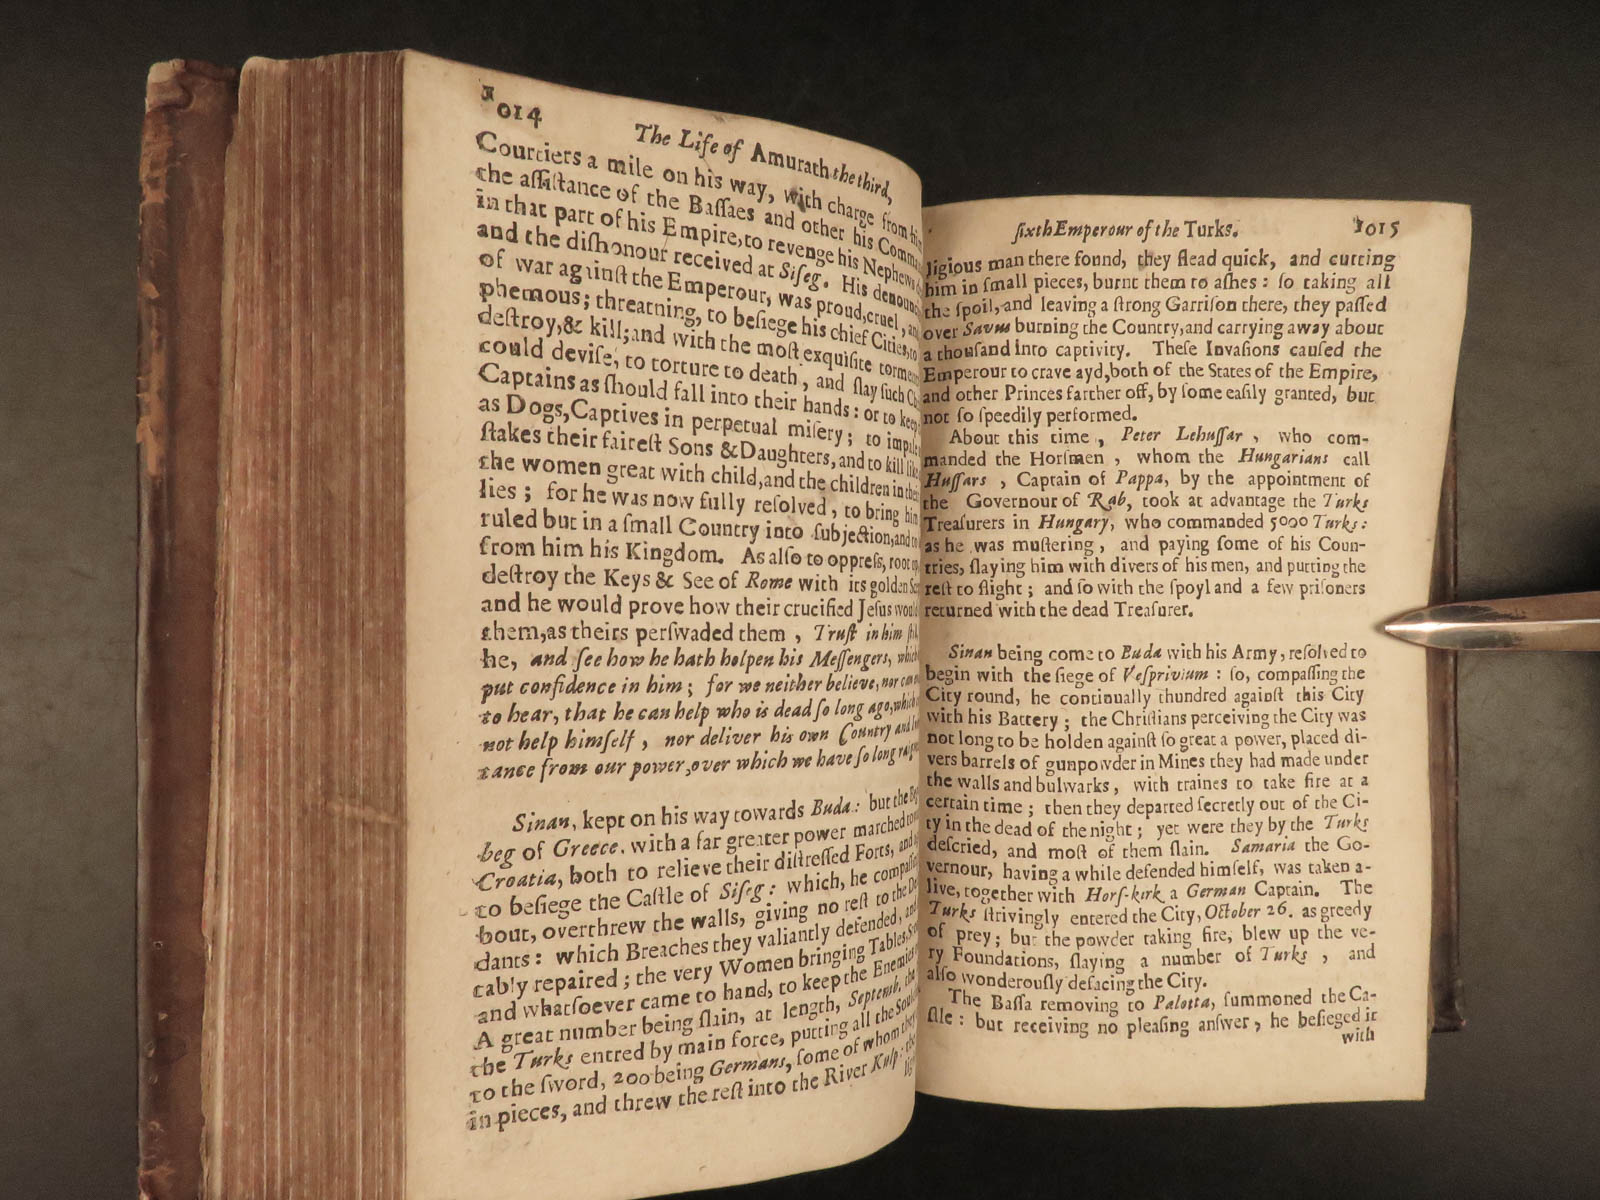 1014
The Life of Amurath the third,
Courtiers a mile on his way, with charge from his
the aſſiſtance of the Baſſaes and other his Comma
in that part of his Empire, to revenge his Nephews
and the diſhonour received at Siſeg. His denounc
of war againſt the Emperour, was proud, cruel, and
phemous; threatning, to beſiege his chief Cities, to
deſtroy, & kill; and with the moſt exquiſite torments
could deviſe, to torture to death, and ſlay ſuch
Captains as ſhould fall into their hands: or to keep
as Dogs, Captives in perpetual miſery; to impale
ſtakes their faireſt Sons & Daughters, and to kill like
the women great with child, and the children in their
lies; for he was now fully reſolved, to bring him
ruled but in a ſmall Country into ſubjection, and to
from him his Kingdom. As alſo to oppreſs, root up
deſtroy the Keys & See of Rome with its golden
and he would prove how their crucified Jeſus would
them, as theirs perſwaded them, Truſt in him ſtill
he, and ſee how he hath holpen his Meſſengers, which
put confidence in him; for we neither believe, nor can
to hear, that he can help who is dead ſo long ago, which
not help himſelf, nor deliver his own Country and
tance from our power, over which we have ſo long
Sinan, kept on his way towards Buda: but the
beg of Greece. with a far greater power marched
Croatia, both to relieve their diſtreſſed Forts, and
to beſiege the Caſtle of Siſeg: which, he compaſſed
bout, overthrew the walls, giving no reſt to the
dants: which Breaches they valiantly defended, and
tably repaired; the very Women bringing Tables,
and whatſoever came to hand, to keep the Enemies
A great number being ſlain, at length, Septemb. the
the Turks entred by main force, putting all the
to the ſword, 200 being Germans, ſome of whom they
in pieces, and threw the reſt into the River Kulp: the
ſixth Emperour of the Turks. 1015
ligious man there found, they flead quick, and cutting
him in ſmall pieces, burnt them to aſhes: ſo taking all
the ſpoil, and leaving a ſtrong Garriſon there, they paſſed
over Savus burning the Country, and carrying away about
a thouſand into captivity. Theſe Invaſions cauſed the
Emperour to crave ayd, both of the States of the Empire,
and other Princes farther off, by ſome eaſily granted, but
not ſo ſpeedily performed.
About this time, Peter Lehuſſar, who com-
manded the Horſmen, whom the Hungarians call
Huſſars, Captain of Pappa, by the appointment of
the Governour of Rab, took at advantage the Turks
Treaſurers in Hungary, who commanded 5000 Turks:
as he was muſtering, and paying ſome of his Coun-
tries, ſlaying him with divers of his men, and putting the
reſt to flight; and ſo with the ſpoyl and a few priſoners
returned with the dead Treaſurer.
Sinan being come to Buda with his Army, reſolved to
begin with the ſiege of Veſprivium: ſo, compaſſing the
City round, he continually thundred againſt this City
with his Battery; the Chriſtians perceiving the City was
not long to be holden againſt ſo great a power, placed di-
vers barrels of gunpowder in Mines they had made under
the walls and bulwarks, with traines to take fire at a
certain time; then they departed ſecretly out of the Ci-
ty in the dead of the night; yet were they by the Turks
deſcried, and moſt of them ſlain. Samaria the Go-
vernour, having a while defended himſelf, was taken a-
live, together with Horſ-kirk a German Captain. The
Turks ſtrivingly entered the City, October 26. as greedy
of prey; but the powder taking fire, blew up the ve-
ry Foundations, ſlaying a number of Turks, and
alſo wonderouſly defacing the City.
The Baſſa removing to Palotta, ſummoned the Ca-
ſtle: but receiving no pleaſing anſwer, he beſieged it
with